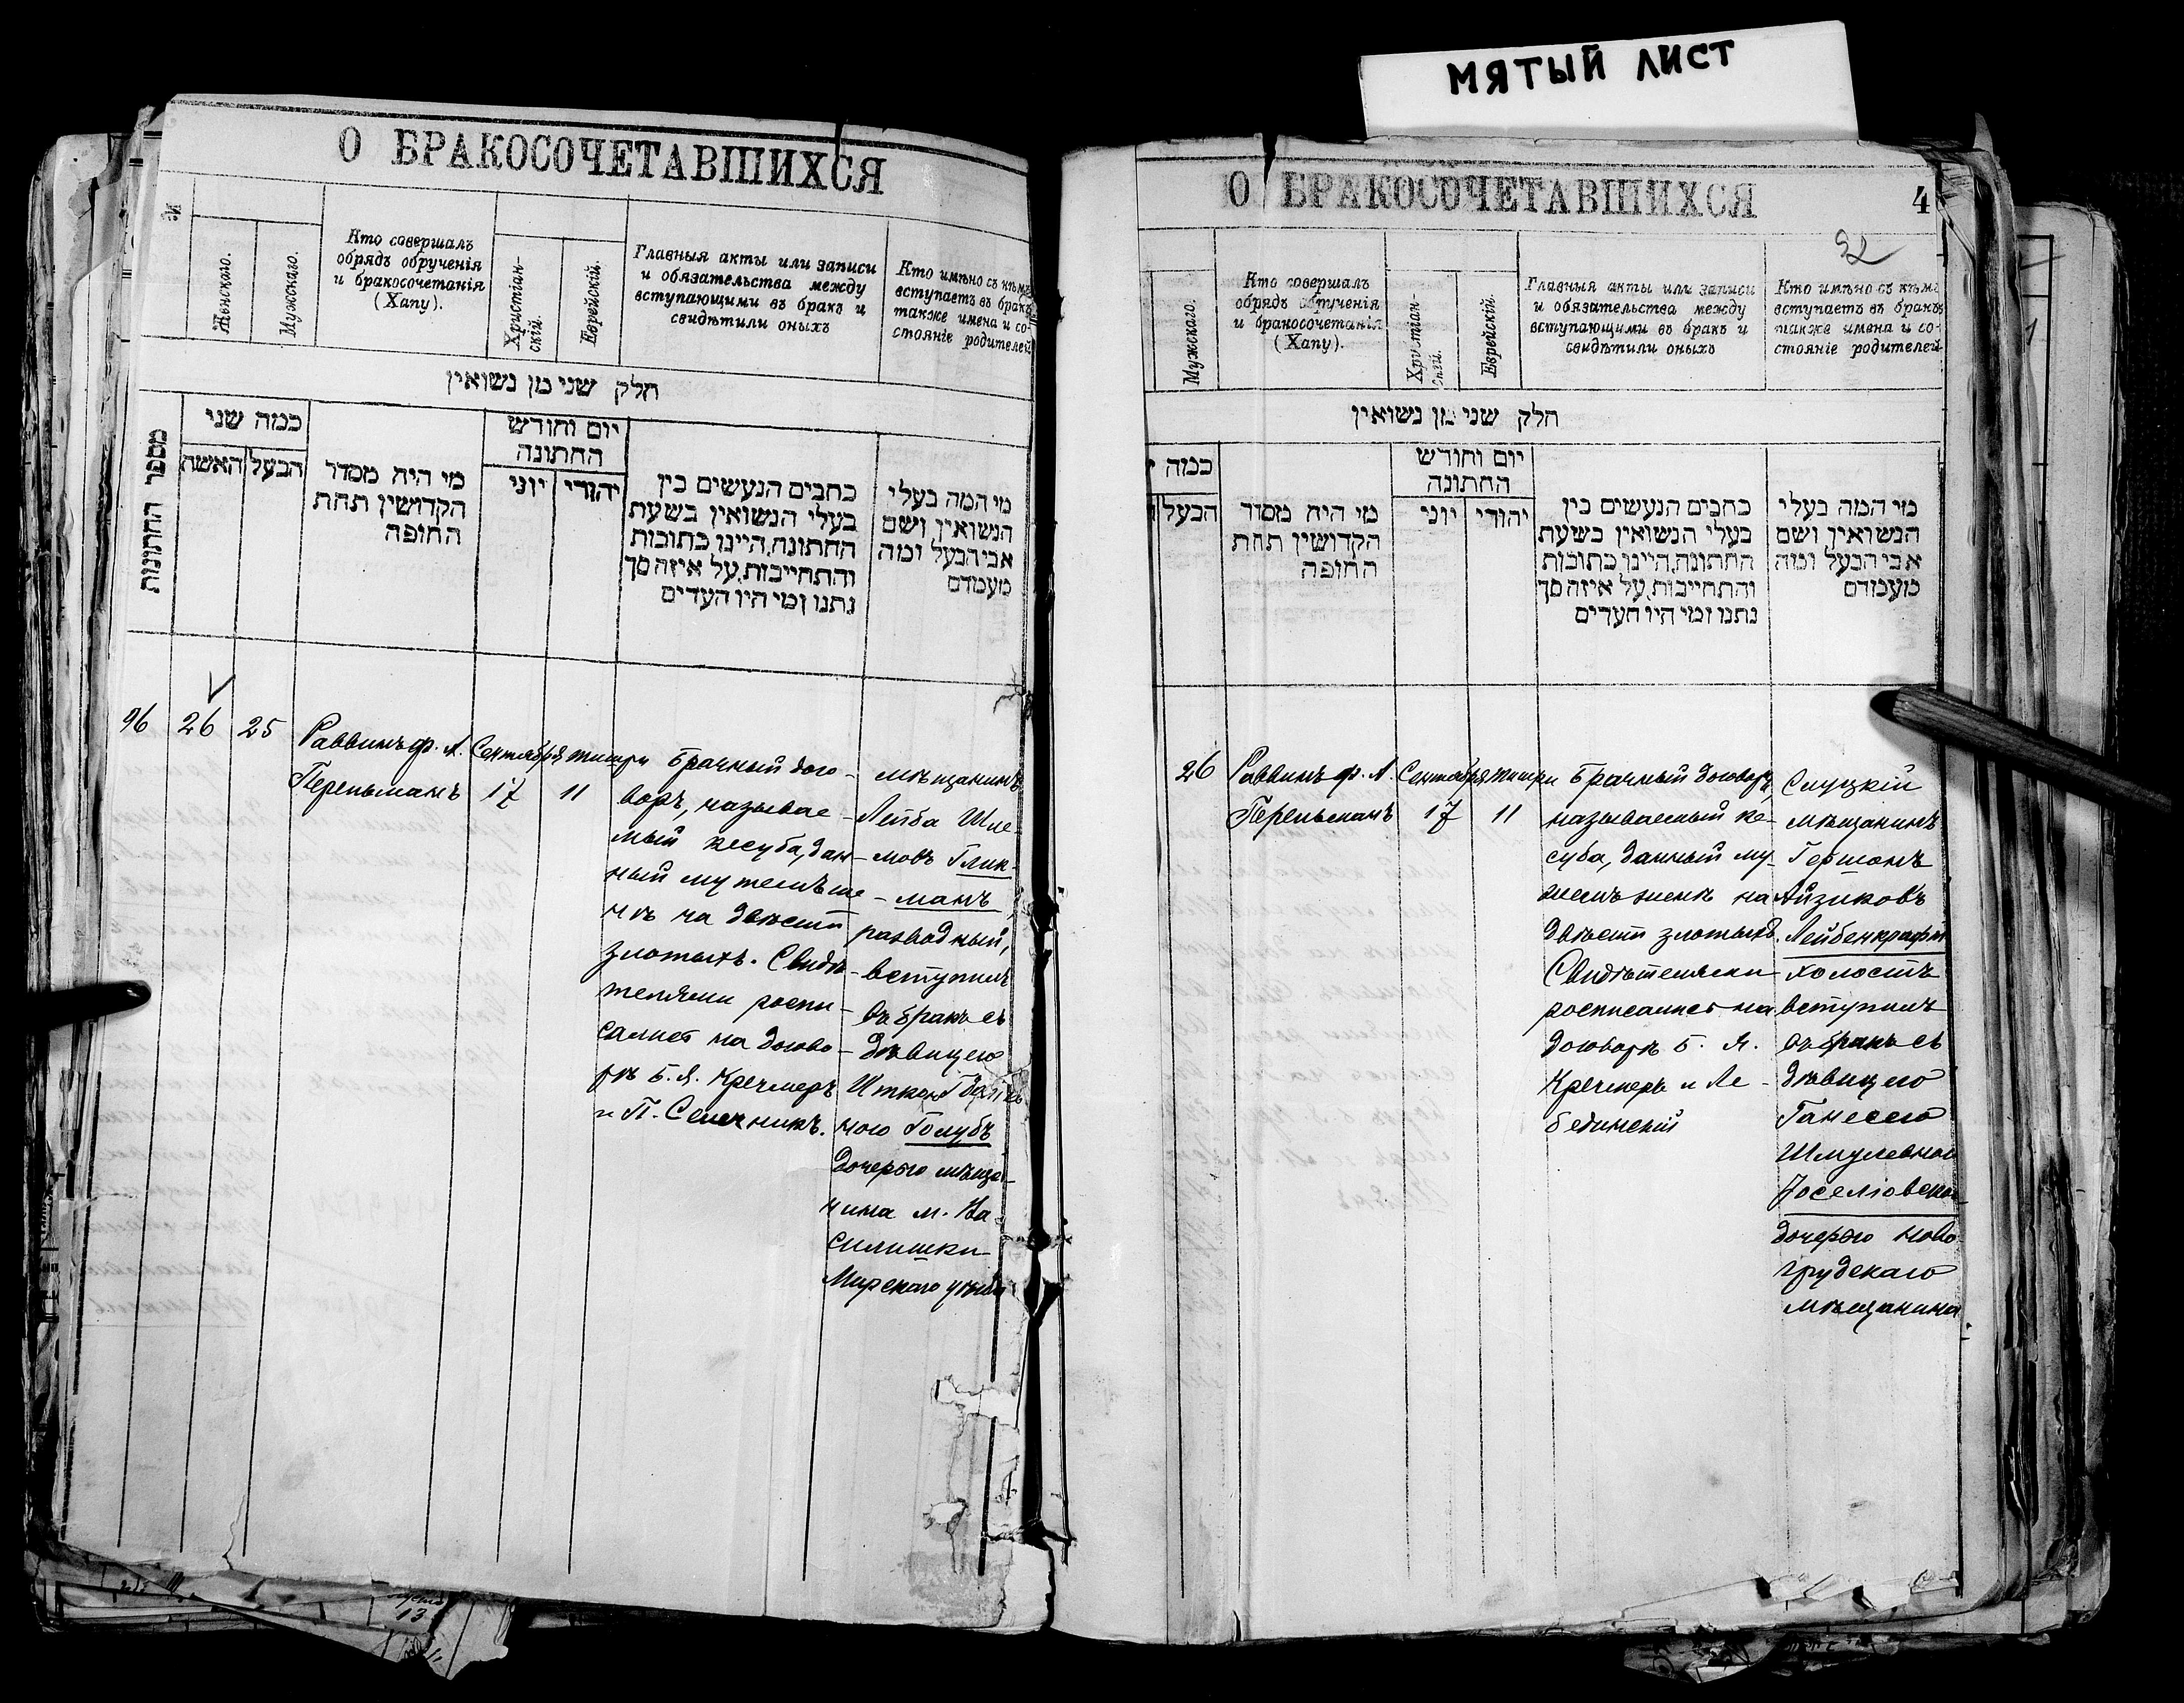 МЯТЫЙ ЛИСТ
О БРАКОСОЧЕТАВШИХСЯ
№
Женскаго.
Мужскаго.
Кто совершалъ
обрядъ обрученія
и бракосочетанія
(Хапу).
Христіан-
скій.
Еврейскій.
Главныя акты или записи
и обязательства между
вступающими въ бракъ и
свидѣтили оныхъ
Кто имѣно съ кѣмъ
вступаетъ въ бракъ
также имена и со-
стояніе родителей
חלק שני מן נשואין
מספר החתונות
כמה שני
האשה
הבעל
מי היה מסדר
הקדושין תחת
החופה
יום וחודש
החתונה
יוני
יהודי
כתבים הנעשים בין
בעלי הנשואין בשעת
החתונה, היינו כתובות
והתחייבות, על איזה סך
נתנו ומי היו העדים
מי המה בעלי
הנשואין ושם
אבי הבעל ומה
מעמדם
96
26
25
Раввинъ ф. А.
Перельманъ
Сентября
17
тишри
11
Брачный дого-
воръ, называе-
мый кесуба, дан-
ный мужемъ же-
нѣ на двѣсти
злотыхъ. Свидѣ-
телями роспи-
сались на догово-
рѣ Б. Я. Кречмеръ
и П. Сен никъ.
мѣщанинъ
Лейба Шле-
мовъ Глик-
манъ
разводный,
вступилъ
въ бракъ съ
дѣвицею
Иткою
ною Голубъ
дочерью мѣща-
нина м. Ва-
силишки
уѣзда
О БРАКОСОЧЕТАВШИХСЯ
4
32
Мужскаго.
Кто совершалъ
обрядъ обрученія
и бракосочетанія
(Хапу).
Христіан
скій.
Еврейскій.
Главныя акты или записи
и обязательства между
вступающими въ бракъ и
свидѣтили оныхъ
Кто имѣно съ кѣмъ
вступаетъ въ бракъ
также имена и со-
стояніе родителей
חלק שני מן נשואין
כמה
הבעל
מי היה מסדר
הקדושין תחת
החופה
יום וחודש
החתונה
יוני
יהודי
כתבים הנעשים בין
בעלי הנשואין בשעת
החתונה, היינו כתובות
והתחייבות, על איזה סך
נתנו ומי היו העדים
מי המה בעלי
הנשואין ושם
אבי הבעל ומה
מעמדם
26
Раввинъ ф. А.
Перельманъ
Сентября
17
тишри
11
Брачный договоръ,
называемый ке-
суба, данный му-
жемъ женѣ на
двѣсти злотыхъ.
Свидѣтелями
росписались на
договорѣ Б. Я.
Кречмеръ и Ле-
бединскій
Слуцкій
мѣщанинъ
Гершонъ
Айзиковъ
Лейбенкрафтъ
холостъ
вступилъ
въ бракъ съ
дѣвицею
Ганесею
Шмулевною
Іоселіовскою
дочерью ново-
грудскаго
мѣщанина.